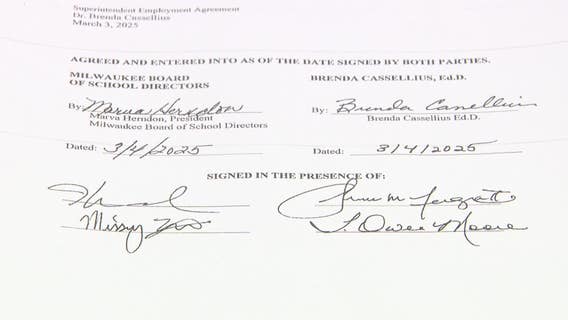 Superintendent Employment Agreement
Dr. Brenda Cassellius
March 3, 2025
AGREED AND ENTERED INTO AS OF THE DATE SIGNED BY BOTH PARTIES.
MILWAUKEE BOARD
OF SCHOOL DIRECTORS
By: Marva Herndon
Marva Herndon, President
Milwaukee Board of School Directors
Dated: 3/4/2025
BRENDA CASSELLIUS, Ed.D.
By: Brenda Cassellius
Brenda Cassellius Ed.D.
Dated: 3/4/2025
SIGNED IN THE PRESENCE OF:
Missy
T. Owen Moore